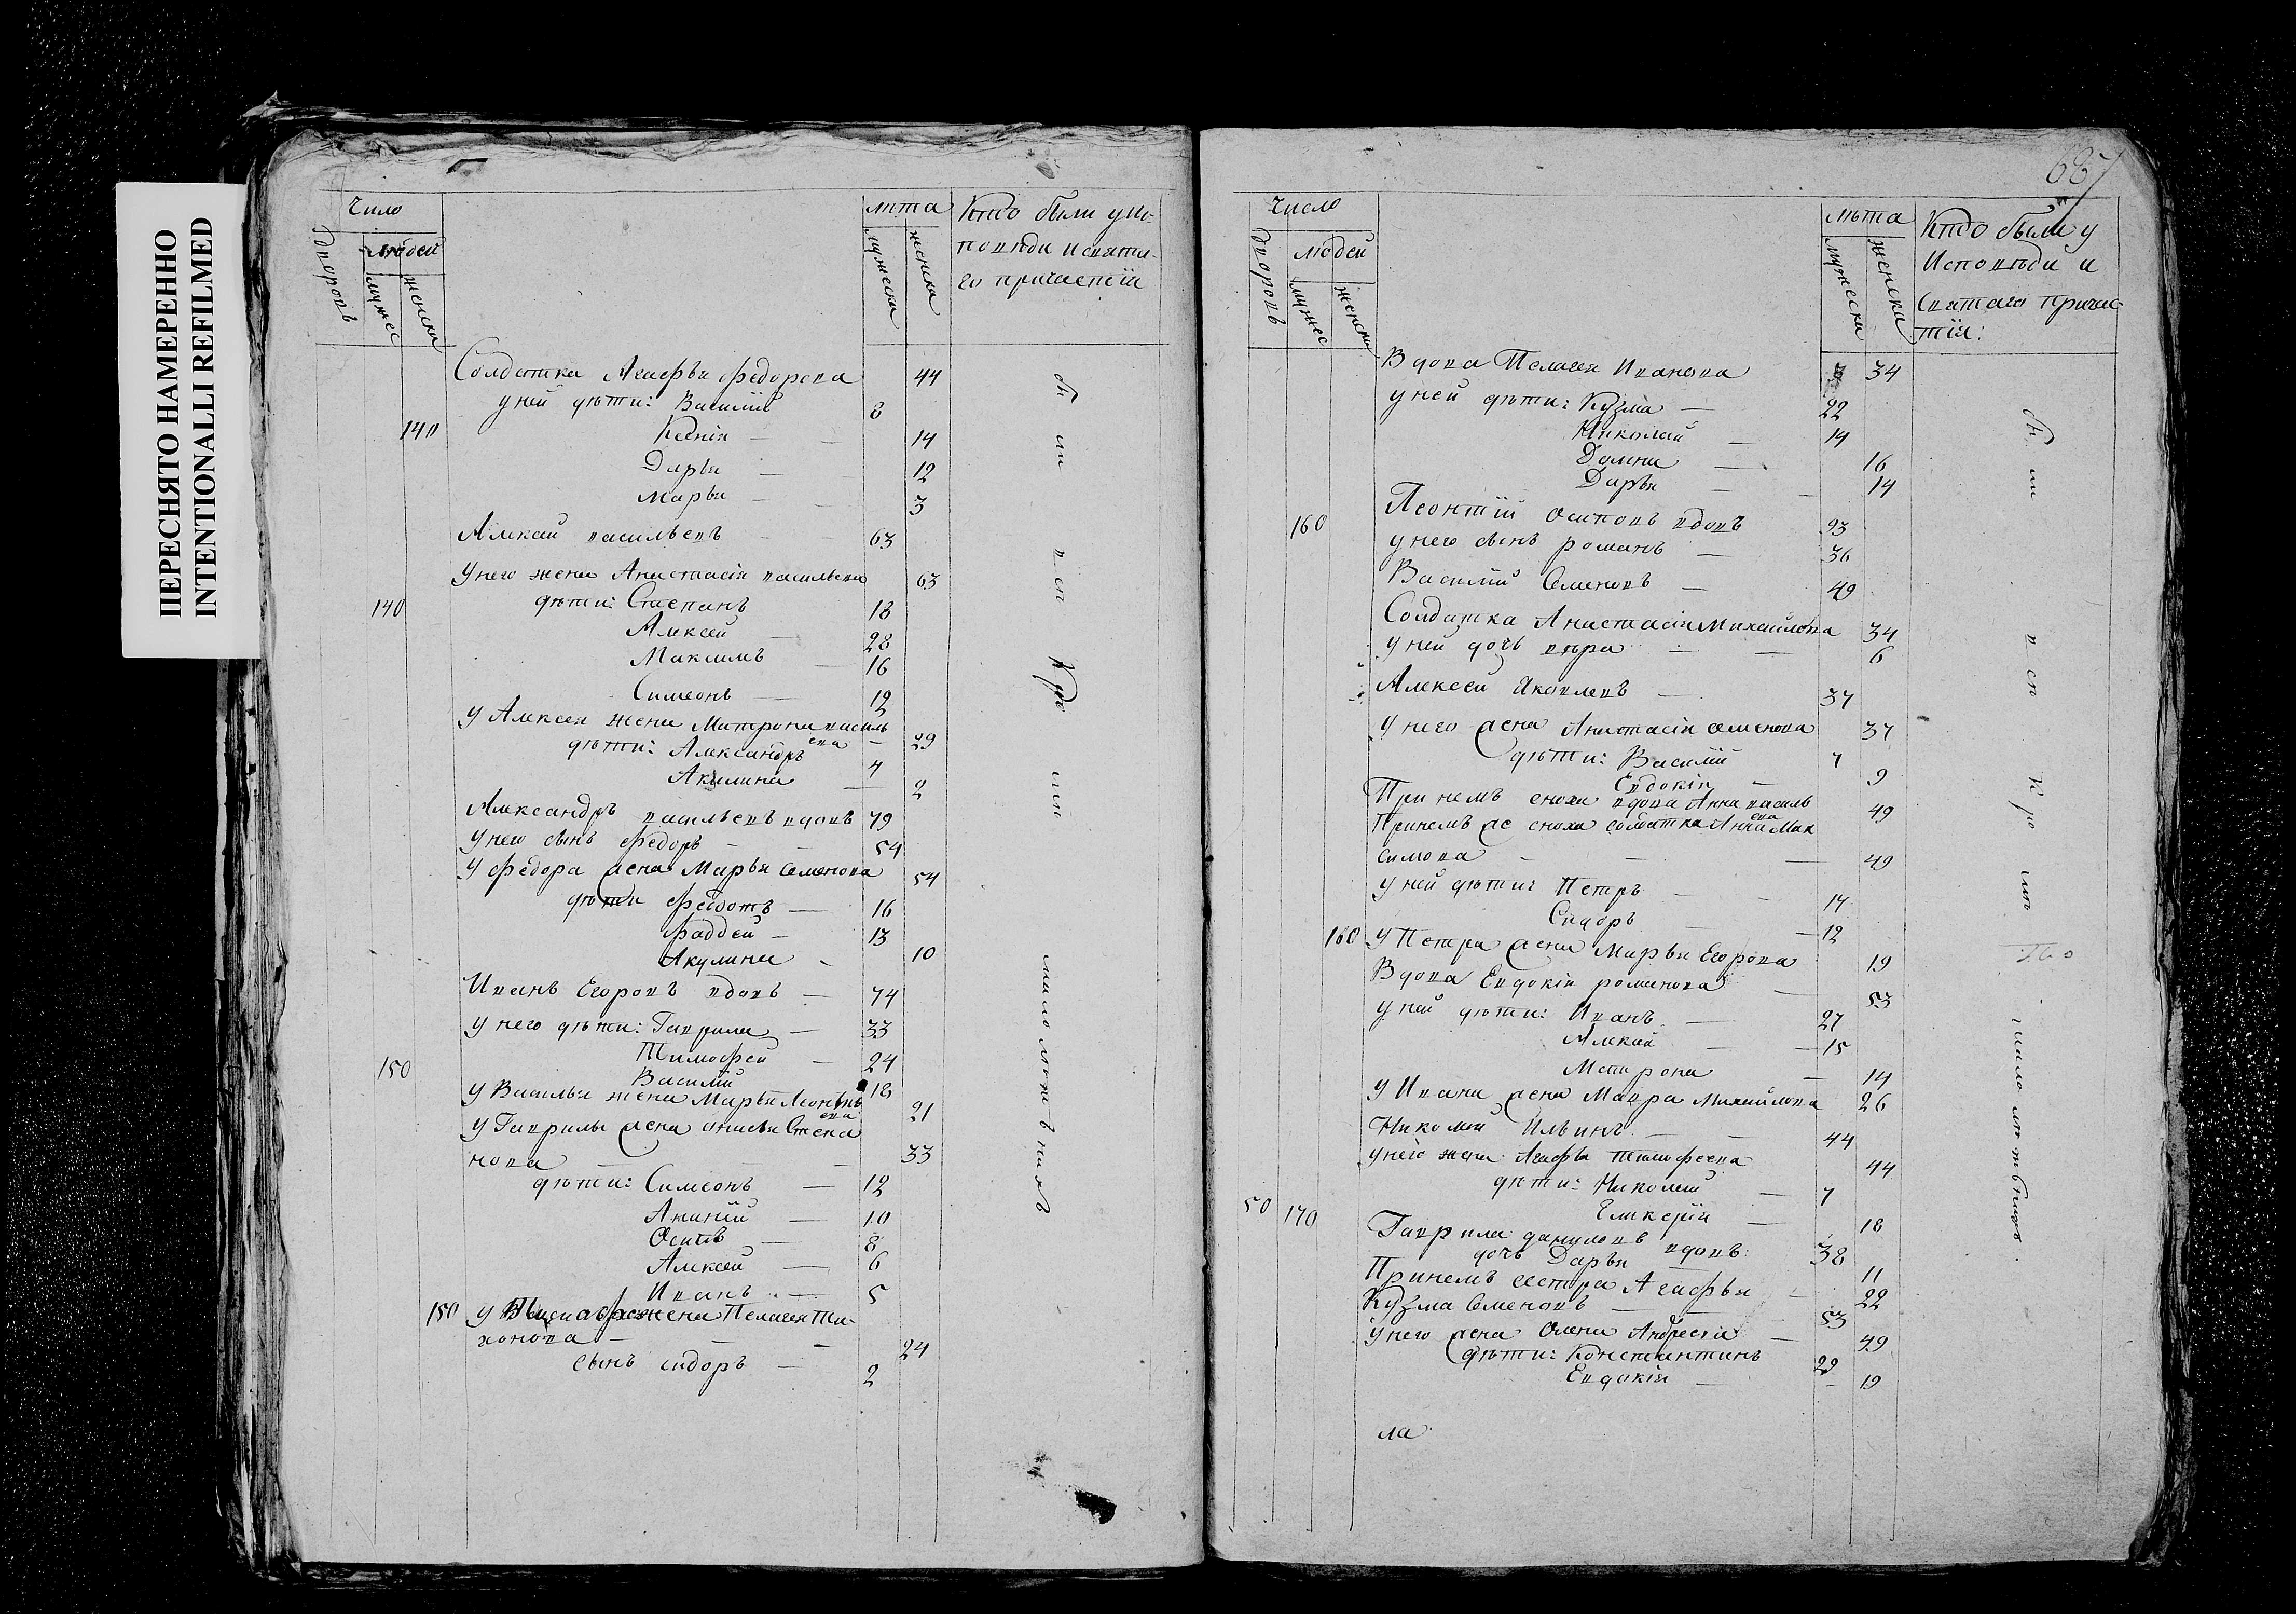 ПЕРЕСНЯТО НАМЕРЕННО
INTENTIONALLI REFILMED
Число
дворовъ
людей
мужес
женска
лѣта
мужеска
женска
Кто были у ис-
повѣди и свята-
го причастїя
Солдатка Агафья Федорова 44
у ней дѣти: Василїй 8
140 Ксенія — 14
Дарья — 12
Марья — 3
Алексѣй васильевъ 63
У него жена Анастасія васильева 63
140 дѣти: Степанъ 18
Алексей — 28
Максимъ — 16
Симеонъ — 12
у Алексея жена Матрона василь
ева — 29
дѣти: Александръ 4
Акилина — 2
Александръ васильевъ вдовъ 79
У него сынъ Федоръ — 54
У Федора жена Марья Семенова 54
дѣти Федотъ — 16
Фаддей — 13
Акулина — 10
Иванъ Егоровъ вдовъ — 74
У него дѣти: Гаврила — 33
Тимофей — 24
150 Василїй 18
у Василья жена Марья Леонтье
ева 21
у Гаврилы жена Анисья Степа
нова — 33
дѣти: Симеонъ — 12
Ананїй — 10
Осипъ — 8
Алексей — 6
Иванъ — 5
150 у жена Пелагея Ти-
хонова — 24
сынъ сидоръ — 2
бы ли всѣ Кро мѣ малолѣтнихъ
687
Число
дворовъ
людей
мужес
женска
лѣта
мужеска
женска
Кто были у
Исповѣди и
Святаго причас-
тїя:
Вдова Пелагея Иванова 34
у ней дѣти: Кузма — 22
Николай — 14
Домна — 16
Дарья — 14
160 Леонтїй Осиповъ вдовъ 93
у него сынъ романъ — 36
Василїй Семеновъ — 49
Солдатка Анастасія Михайлова 34
у ней дочь вѣра — 6
Алексей Яковлевъ — 37
У него жена Анастасія семенова 37
дѣти: Василїй 7
Евдокія — 9
При немъ сноха вдова Анна василь
ева 49
При немъ же сноха солдатка Анна Мак
симова — 49
У ней дѣти: Петръ — 17
Сидоръ — 12
160 У Петра жена Марья Егорова 19
Вдова Евдокія романова — 53
у ней дѣти: Иванъ — 27
Алексѣй — 15
Матрона — 14
у Ивана жена Мавра Михайлова 26
Николай Ильинъ — 44
у него жена Агафья Тимофеева 44
дѣти: Николай — 7
50 170 Гликерїя — 18
Гаврила даниловъ вдовъ: 38
дочь Дарья — 11
При немъ сестра Агафья — 22
Кузма Семеновъ — 53
У него жена Олена Андреева — 49
дѣти: Константинъ 29
Евдокія — 19
ла
бы ли всѣ Кро мѣ мало лѣтнихъ